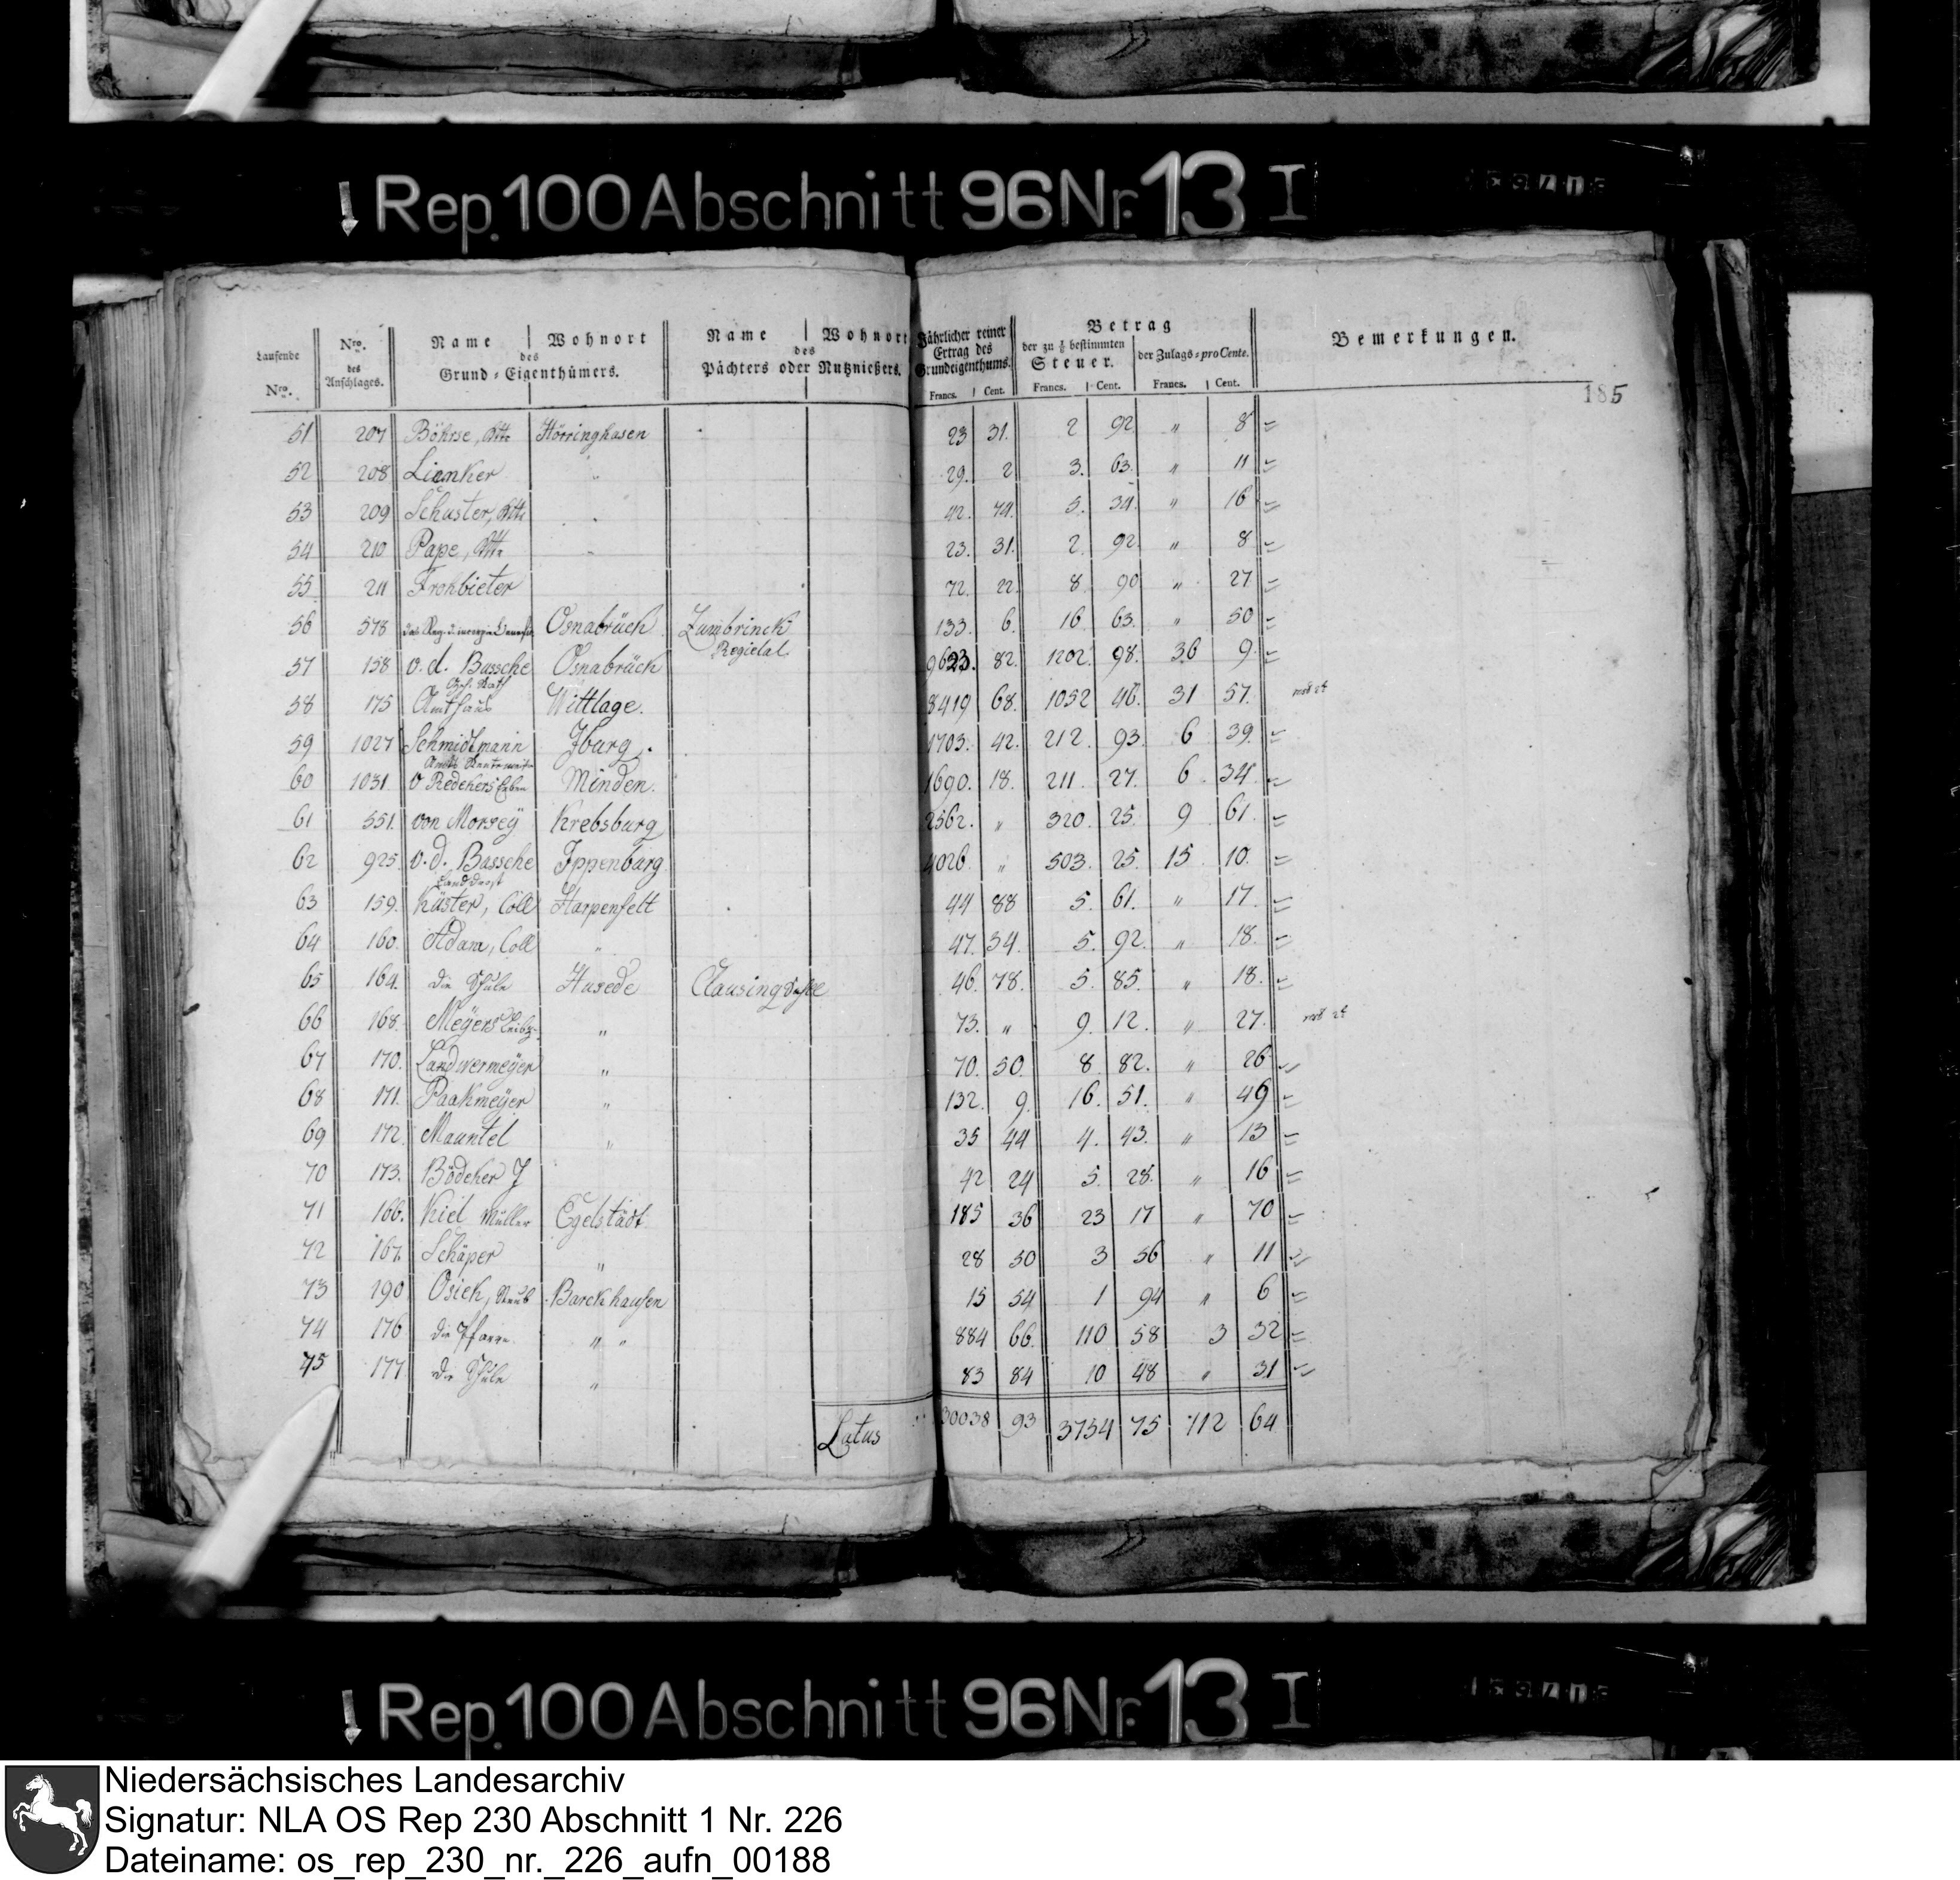 Rep. 100 Abschnitt 96 Nr. 13 I
Laufende Nro. | Nro. des Anschlages. | Name | Wohnort des Grund-Eigenthümers. | Name | Wohnort des Pächters oder Nutznießers. | Jährlicher reiner Ertrag des Grundeigenthums. Francs. Cent. | Betrag der zu 1/8 bestimmten Steuer. Francs. Cent. | der Zulags-pro Cente. Francs. Cent. | Bemerkungen.
185
51 207 Böhrse, Hörringhasen 23 31. 2 92 " 8
52 208 Lienker 29. 2 3. 63. " 11
53 209 Schuster, 42. 74. 5. 34. " 16
54 210 Pape, 23. 31. 2. 92. " 8
55 211 Fronbieter 72. 22 8 90 " 27
56 578 Osnabrück Zumbrinck 133. 6. 16 63. " 50
57 158 v. d. Bussche Osnabrück 9623. 82. 1202. 98. 36 9
58 175 Amthaus Wittlage. 8419 68. 1052 46. 31 57.
59 1027 Schmidtmann Iburg. 1703. 42. 212. 93. 6 39.
60 1031 v Redekers Erben Minden. 1690. 18. 211. 27. 6. 34.
61 551. von Morsey Krebsburg 2562. " 320. 25. 9 61.
62 925. v. d. Bussche Landdrost Ippenburg 4026 " 503. 25. 15 10.
63 159. Küster, Coll Harpenfelt 44 88 5. 61. " 17.
64 160. Adam, Coll " 47. 34. 5. 92. " 18.
65 164. die Schule Husede 46. 78. 5. 85. " 18.
66 168. Meyers Leibz. " 73. " 9. 12. " 27.
67 170. Landwermeyer " 70. 50. 8. 82. " 26
68 171. Paakmeyer " 132. 9. 16. 51. " 49
69 172. Mauntel " 35 44 4. 43. " 13
70 173. Bödeker J 42 24 5. 28. " 16
71 166. Kiel Müller Egelstädt 185 36 23 17 " 70
72 167. Schäper " 28 50 3 56 " 11
73 190 Osiek, Barckhausen 15 54 1 94 " 6
74 176 die Pfarre " " 884 66. 110 58 3 32
75 177 die Schule " 83 84 10 48 " 31
Latus 30038 93 3754 75 112 64
Rep. 100 Abschnitt 96 Nr. 13 I
Niedersächsisches Landesarchiv
Signatur: NLA OS Rep 230 Abschnitt 1 Nr. 226
Dateiname: os_rep_230_nr._226_aufn_00188